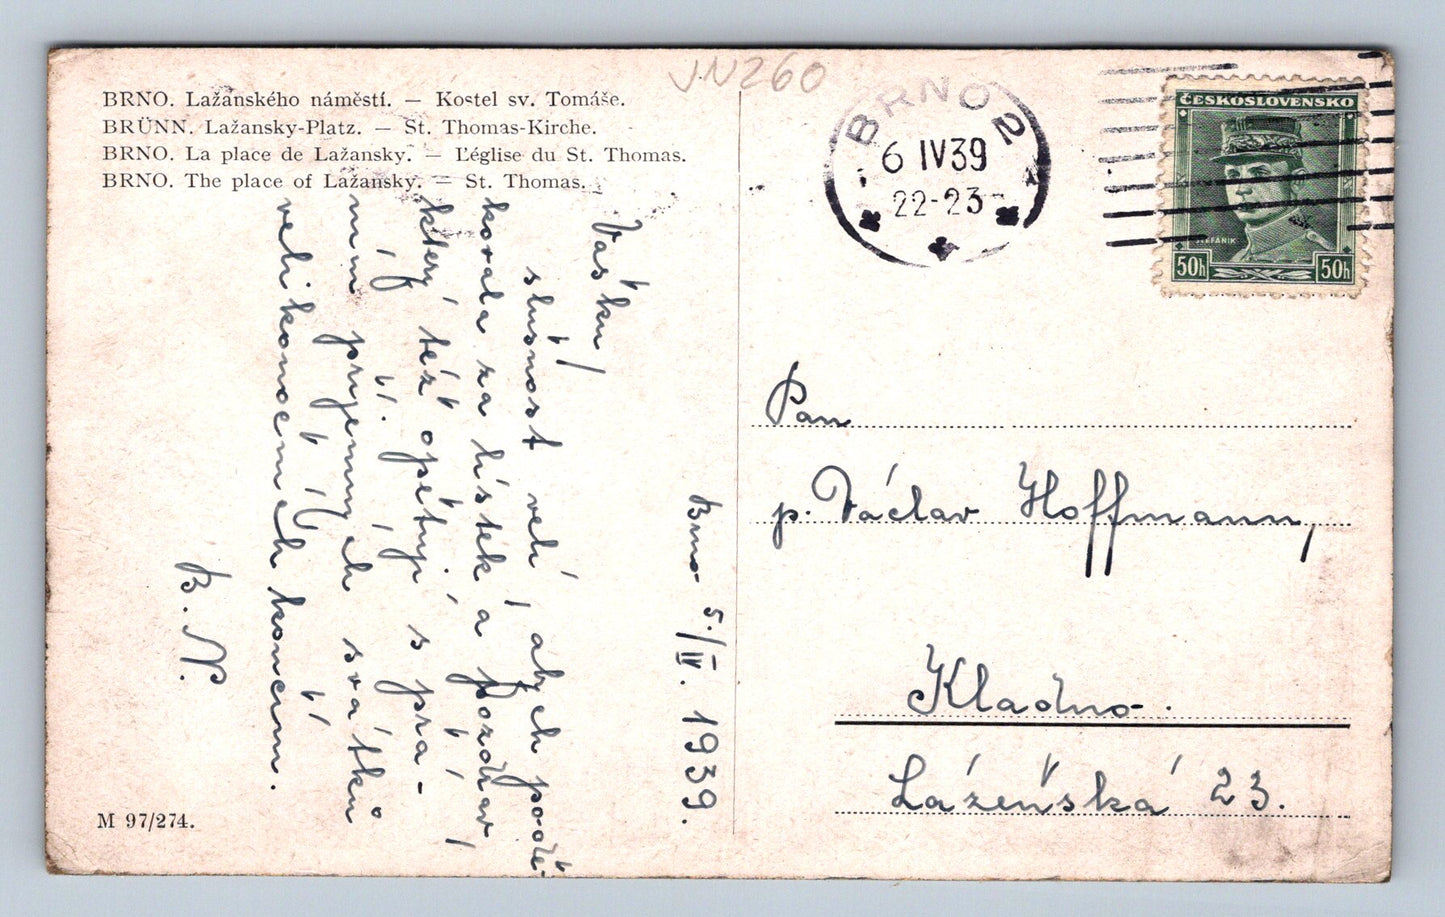 BRNO. Lažanského náměstí. — Kostel sv. Tomáše.
BRÜNN. Lažansky-Platz. — St. Thomas-Kirche.
BRNO. La place de Lažansky. — L'église du St. Thomas.
BRNO. The place of Lažansky. — St. Thomas.
VN260
BRNO 2
6 IV 39
22-23
ČESKOSLOVENSKO
ŠTEFÁNIK
50h 50h
Brno 5./IV. 1939.
Vašku!
slušnost velí abych poďě-
kovala za lístek a pozdrav
který též opětuji s přá-
ním příjemných svátků
velikonočních končím.
B. N.
Pan
p. Václav Hoffmann,
Kladno.
Lázeňská 23.
M 97/274.